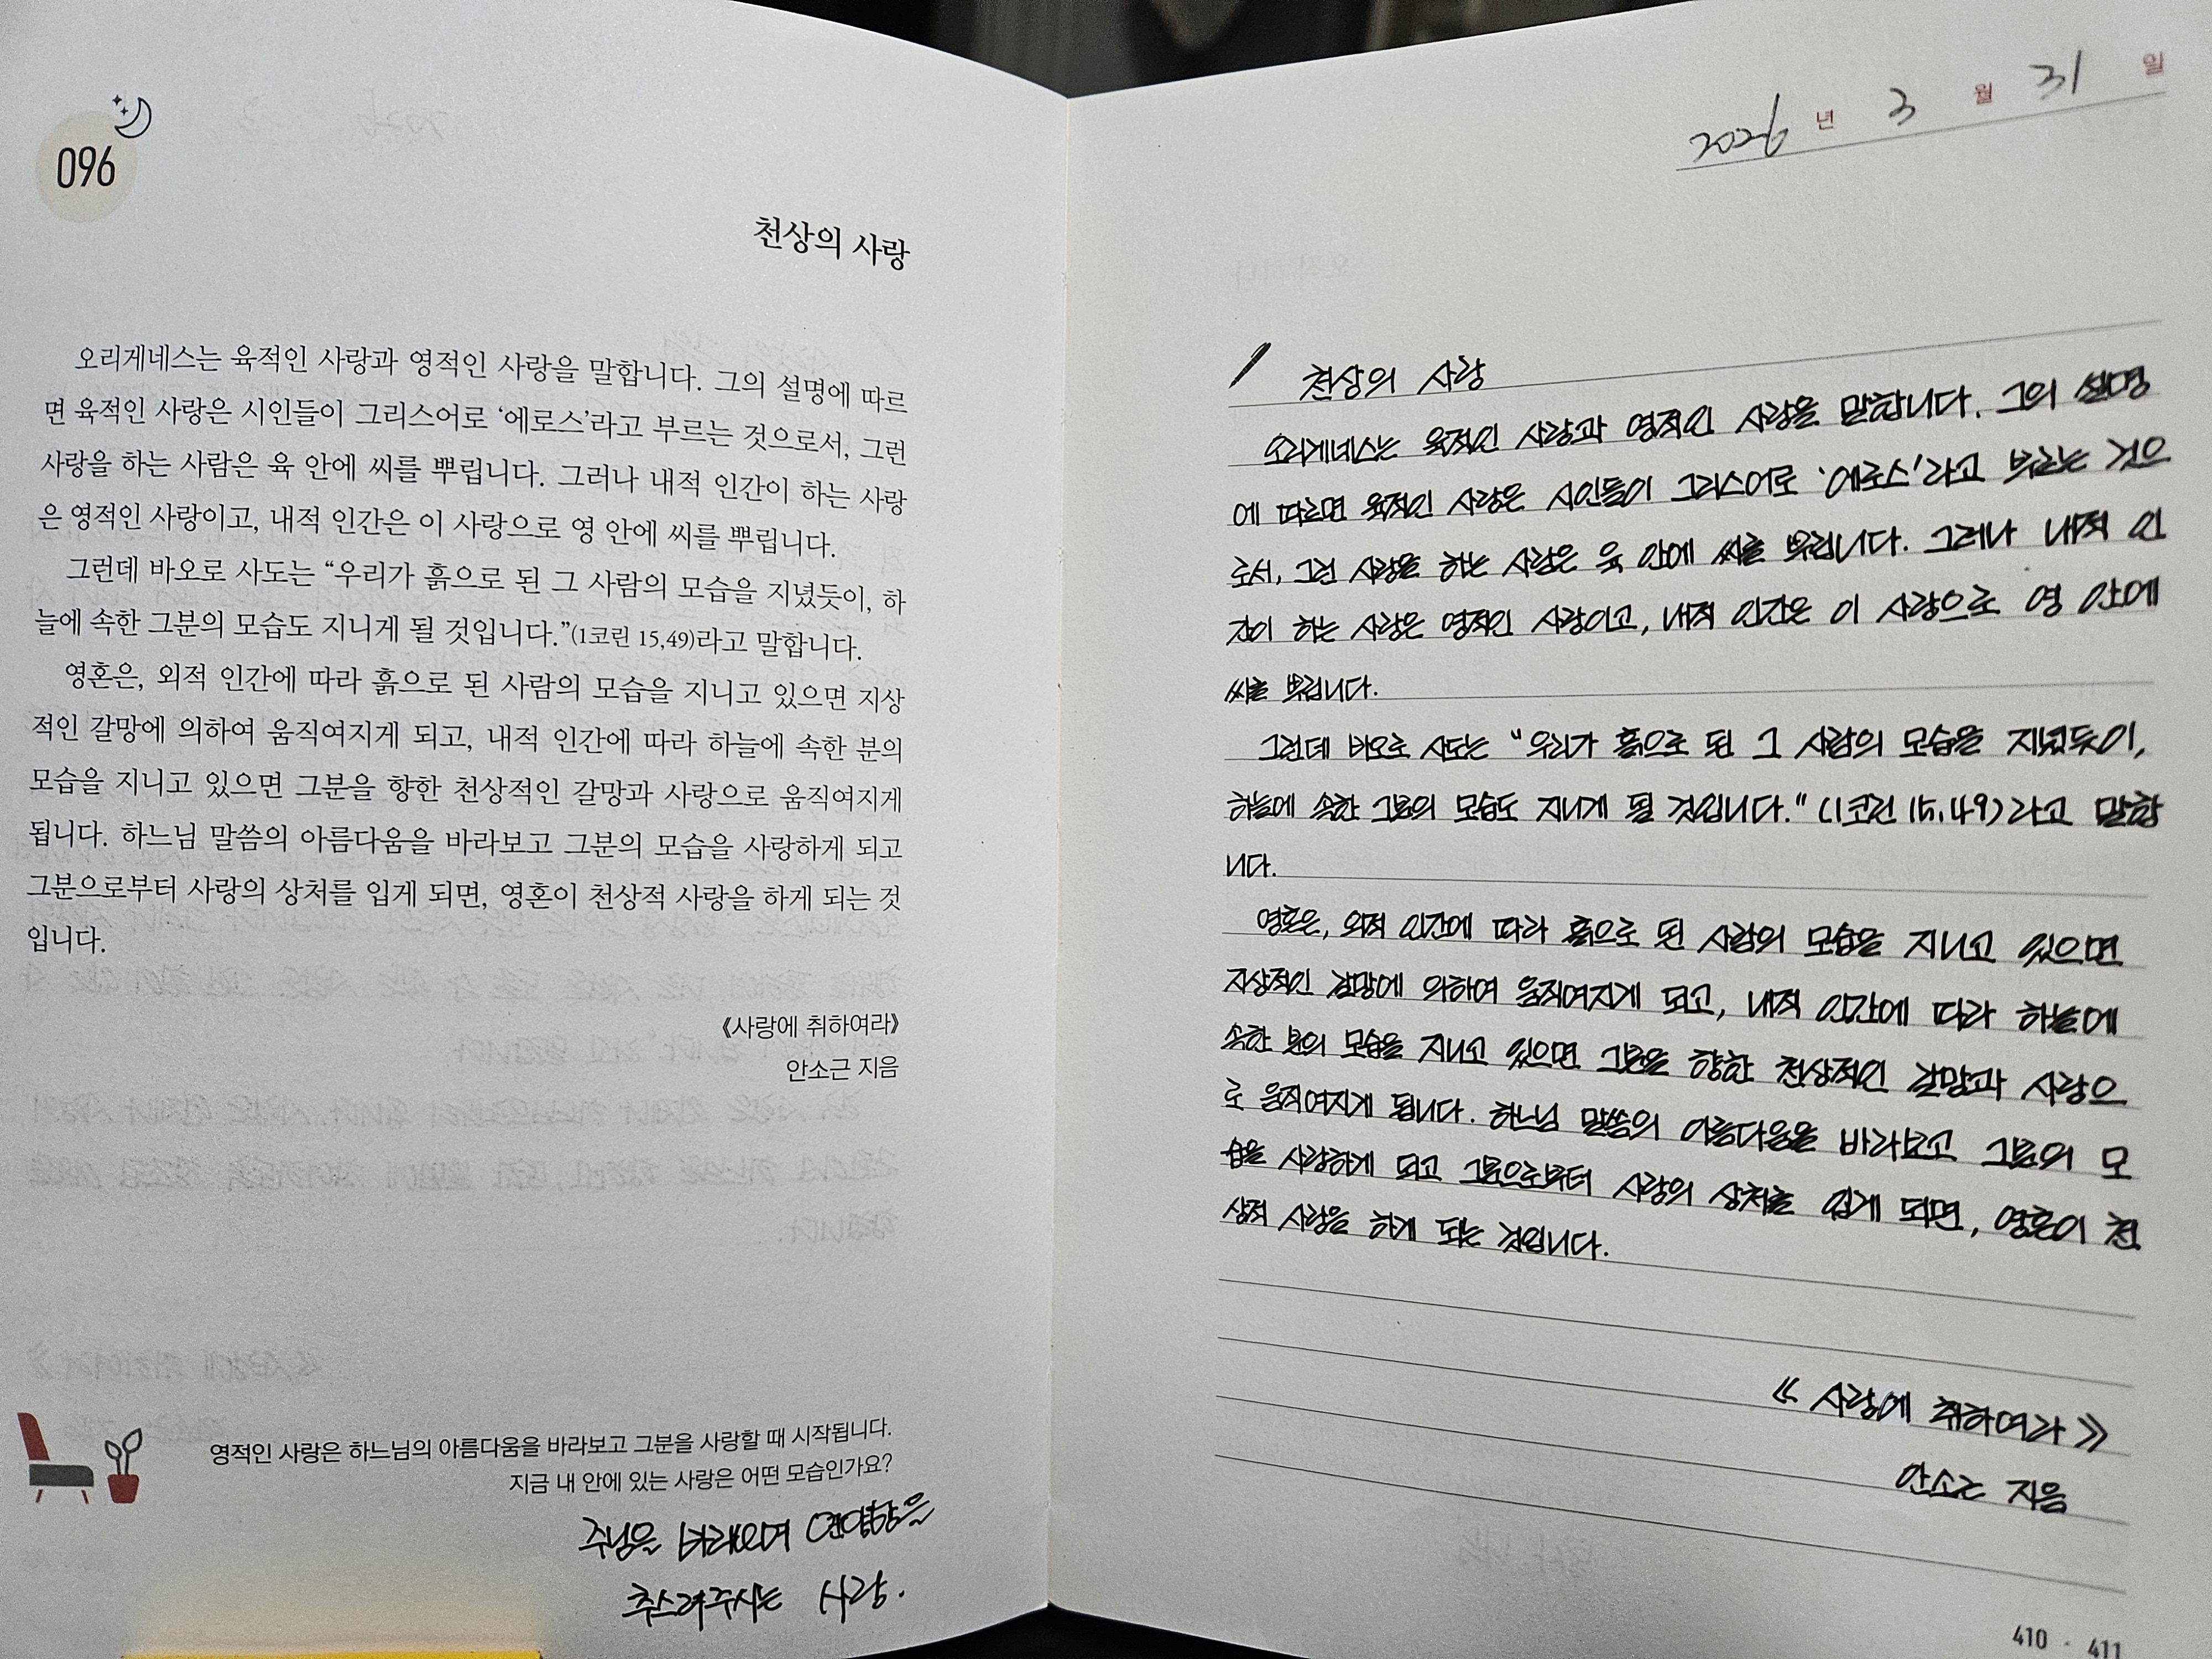 096
천상의 사랑
오리게네스는 육적인 사랑과 영적인 사랑을 말합니다. 그의 설명에 따르
면 육적인 사랑은 시인들이 그리스어로 ‘에로스’라고 부르는 것으로서, 그런
사랑을 하는 사람은 육 안에 씨를 뿌립니다. 그러나 내적 인간이 하는 사랑
은 영적인 사랑이고, 내적 인간은 이 사랑으로 영 안에 씨를 뿌립니다.
그런데 바오로 사도는 “우리가 흙으로 된 그 사람의 모습을 지녔듯이, 하
늘에 속한 그분의 모습도 지니게 될 것입니다.”(1코린 15,49)라고 말합니다.
영혼은, 외적 인간에 따라 흙으로 된 사람의 모습을 지니고 있으면 지상
적인 갈망에 의하여 움직여지게 되고, 내적 인간에 따라 하늘에 속한 분의
모습을 지니고 있으면 그분을 향한 천상적인 갈망과 사랑으로 움직여지게
됩니다. 하느님 말씀의 아름다움을 바라보고 그분의 모습을 사랑하게 되고
그분으로부터 사랑의 상처를 입게 되면, 영혼이 천상적 사랑을 하게 되는 것
입니다.
《사랑에 취하여라》
안소근 지음
영적인 사랑은 하느님의 아름다움을 바라보고 그분을 사랑할 때 시작됩니다.
지금 내 안에 있는 사랑은 어떤 모습인가요?
주님을
추스려주시는 사랑.
2026 년 3 월 31 일
천상의 사랑
오리게네스는 육적인 사랑과 영적인 사랑을 말합니다. 그의 설명
에 따르면 육적인 사랑은 시인들이 그리스어로 ‘에로스’라고 부르는 것으
로서, 그런 사랑을 하는 사람은 육 안에 씨를 뿌립니다. 그러나 내적 인
간이 하는 사랑은 영적인 사랑이고, 내적 인간은 이 사랑으로 영 안에
씨를 뿌립니다.
그런데 바오로 사도는 “우리가 흙으로 된 그 사람의 모습을 지녔듯이,
하늘에 속한 그분의 모습도 지니게 될 것입니다.” (1코린 15,49)라고 말합
니다.
영혼은, 외적 인간에 따라 흙으로 된 사람의 모습을 지니고 있으면
지상적인 갈망에 의하여 움직여지게 되고, 내적 인간에 따라 하늘에
속한 분의 모습을 지니고 있으면 그분을 향한 천상적인 갈망과 사랑으
로 움직여지게 됩니다. 하느님 말씀의 아름다움을 바라보고 그분의 모
습을 사랑하게 되고 그분으로부터 사랑의 상처를 입게 되면, 영혼이 천
상적 사랑을 하게 되는 것입니다.
《사랑에 취하여라》
안소근 지음
410 · 411